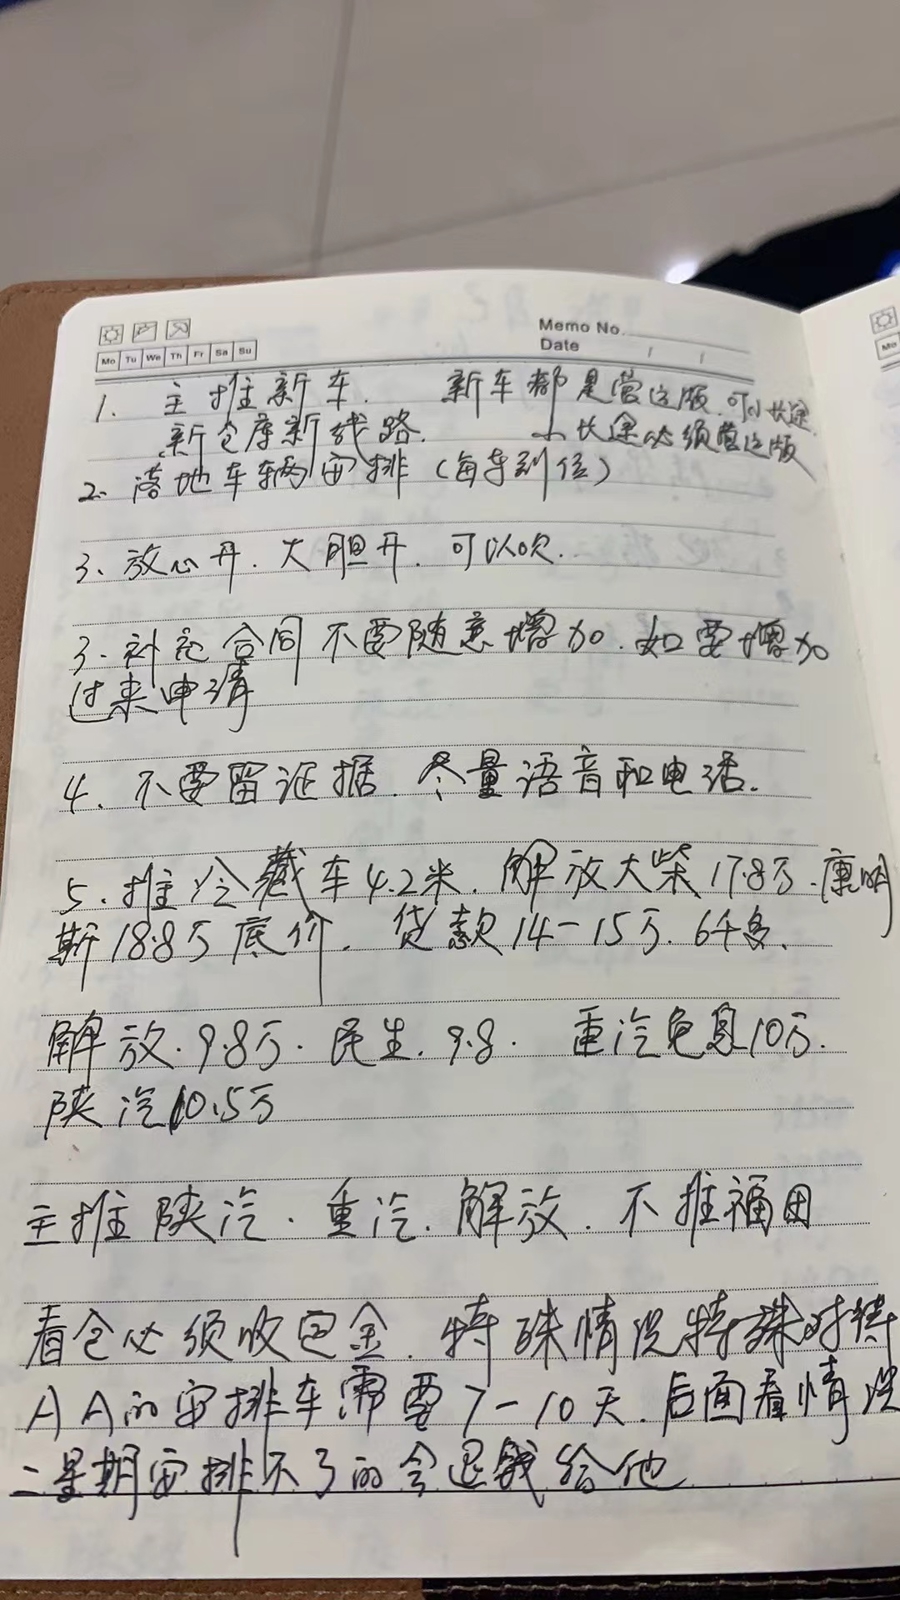 Memo No.
Mo Tu We Th Fr Sa Su
Date / /
1. 主推新车. 新车都是营运版.可小长途.
新仓库新线路. 小长途必须营运版
2. 落地车辆安排（每季到位）
3、放心开.大胆开.可以吹.
3、补充合同不要随意增加.如要增加
过来申请
4、不要留证据.尽量语音和电话.
5、推冷藏车4.2米.解放大柴17.8万.康明
斯18.8万底价.贷款14-15万.64多.
解放.9.8万.民生.9.8. 重汽 10万.
陕汽10.5万
主推陕汽.重汽.解放.不推福田
看仓必须收 金.特殊情况特殊对待
AA的安排车需要7-10天.后面看情况
二星期安排不了的会退钱给他
Mo